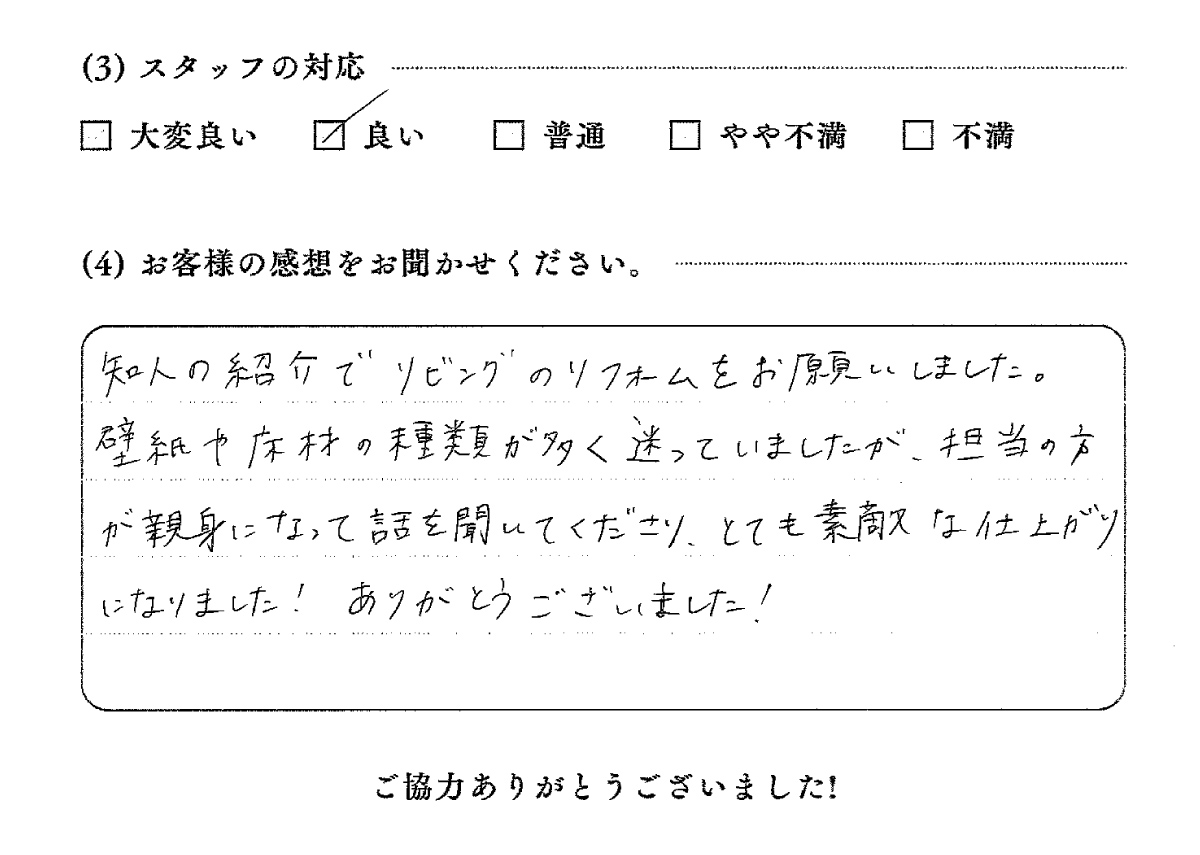 (3) スタッフの対応
□ 大変良い ☑ 良い □ 普通 □ やや不満 □ 不満
(4) お客様の感想をお聞かせください。
知人の紹介でリビングのリフォームをお願いしました。
壁紙や床材の種類が多く迷っていましたが、担当の方
が親身になって話を聞いてくださり、とても素敵な仕上がり
になりました！ ありがとうございました！
ご協力ありがとうございました!